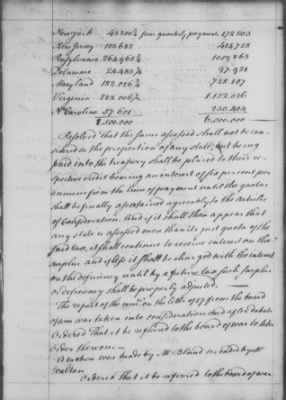 New york 43200¼ four quarterly payments 172803
New Jersey 103682 414728
Pensylvania 264960¼ 1059863
Delaware 24480¼ 97921
Maryland 182026¾ 728107
Virginia 288006½ 1152026
N° Carolina 57601 230404
1,500,000 6,000,000
Resolved that the sums assessed shall not be con-
sidered as the proportion of any state, but being
paid into the treasury shall be placed to their re-
spective credit bearing an interest of six per cent per
annum from the time of payment until the quotas
shall be finally ascertained agreeably to the Articles
of Confederation. And if it shall then appear that
any state is assessed more than its just quota of the
said tax, it shall continue to receive interest on the
surplus and if less it shall be charged with the interest
on the deficiency until by a future tax such surplus
or deficiency shall be properly adjusted.
The report of the comee on the letter of 17 from the board
of war was taken into consideration and after debate
Ordered That it be referred to the board of war to take
order thereon.
A motion was made by Mr Bland seconded by Mr
Walton
Ordered that it be referred to the board of war